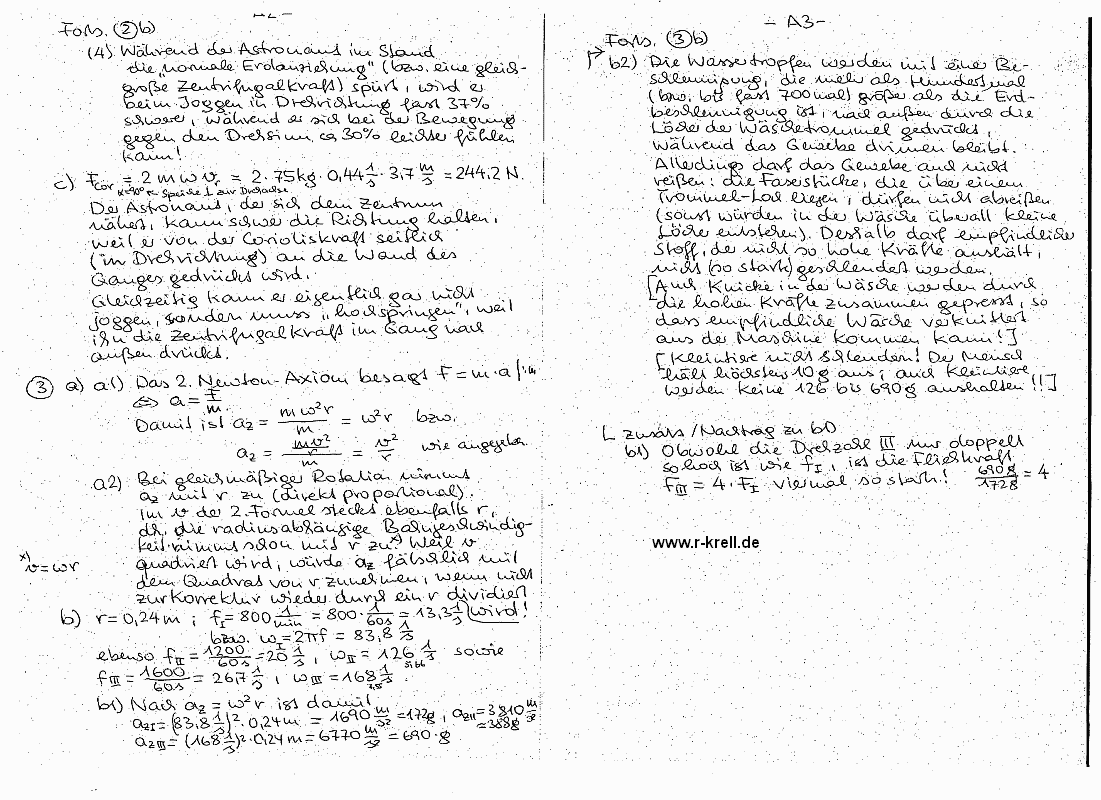 - 2 -
Forts. (2) b)
(4) Während der Astronaut im Stand
die "normale Erdanziehung" (bzw. eine gleich-
große Zentrifugalkraft) spürt, wird er
beim Joggen in Drehrichtung fast 37%
schwerer, während er sich bei der Bewegung
gegen den Drehsinn ca 30% leichter fühlen
kann!
c) Fcor = 2 m ω v = 2·75kg·0,44 1/s·3,7 m/s = 244,2 N.
α=90° Speiche ⊥ zur Drehachse
Der Astronaut, der sich dem Zentrum
nähert, kann schwer die Richtung halten,
weil er von der Corioliskraft seitlich
(in Drehrichtung) an die Wand des
Ganges gedrückt wird.
Gleichzeitig kann er eigentlich gar nicht
joggen, sondern muss "hochspringen", weil
ihn die Zentrifugalkraft im Gang nach
außen drückt.
(3) a) a1) Das 2. Newton-Axiom besagt F = m·a |:m
⇔ a = F/m.
Damit ist az = mω²r/m = ω²r bzw.
az = (mv²/r)/m = v²/r wie angegeben
a2) Bei gleichmäßiger Rotation nimmt
az mit r zu (direkt proportional).
Im v der 2. Formel steckt ebenfalls r,
dh. die radiusabhängige Bahngeschwindig-
keit nimmt schon mit r zu.*) Weil v
quadriert wird, würde az fälschlich mit
*) v = ωr
dem Quadrat von r zunehmen, wenn nicht
zur Korrektur wieder durch ein r dividiert
wird!
b) r = 0,24 m ; fI = 800 1/min = 800· 1/60s = 13,3 1/s
bzw. ωI = 2πf = 83,8 1/s
ebenso fII = 1200/60s = 20 1/s , ωII = 126 1/s sowie
fIII = 1600/60s = 26,7 1/s , ωIII = 168 1/s .
b1) Nach az = ω²r ist damit
azI = (83,8 1/s)²·0,24m = 1690 m/s² = 172g , azII = 3810 m/s² = 388g
azIII = (168 1/s)²·0,24m = 6770 m/s² = 690·g
- A3 -
Forts. (3) b)
b2) Die Wassertropfen werden mit einer Be-
schleunigung, die mehr als Hundertmal
(bzw. bis fast 700mal) größer als die Erd-
beschleunigung ist, nach außen durch die
Löcher der Wäschetrommel gedrückt,
während das Gewebe drinnen bleibt.
Allerdings darf das Gewebe auch nicht
reißen: die Faserstücke, die über einem
Trommel-Loch liegen, dürfen nicht abreißen
(sonst würden in der Wäsche überall kleine
Löcher entstehen). Deshalb darf empfindlicher
Stoff, der nicht so hohe Kräfte aushält,
nicht (so stark) geschleudert werden.
[Auch Knicke in der Wäsche werden durch
die hohen Kräfte zusammen gepresst, so
dass empfindliche Wäsche verknittert
aus der Maschine kommen kann!]
[Kleintiere nicht schleudern! Der Mensch
hält höchstens 10g aus; auch Kleintiere
werden keine 126 bis 690g aushalten!!]
Zusatz/Nachtrag zu b1)
b1) Obwohl die Drehzahl III nur doppelt
so hoch ist wie fI, ist die Fliehkraft
FIII = 4·FI viermal so stark! 690g/172g = 4
www.r-krell.de